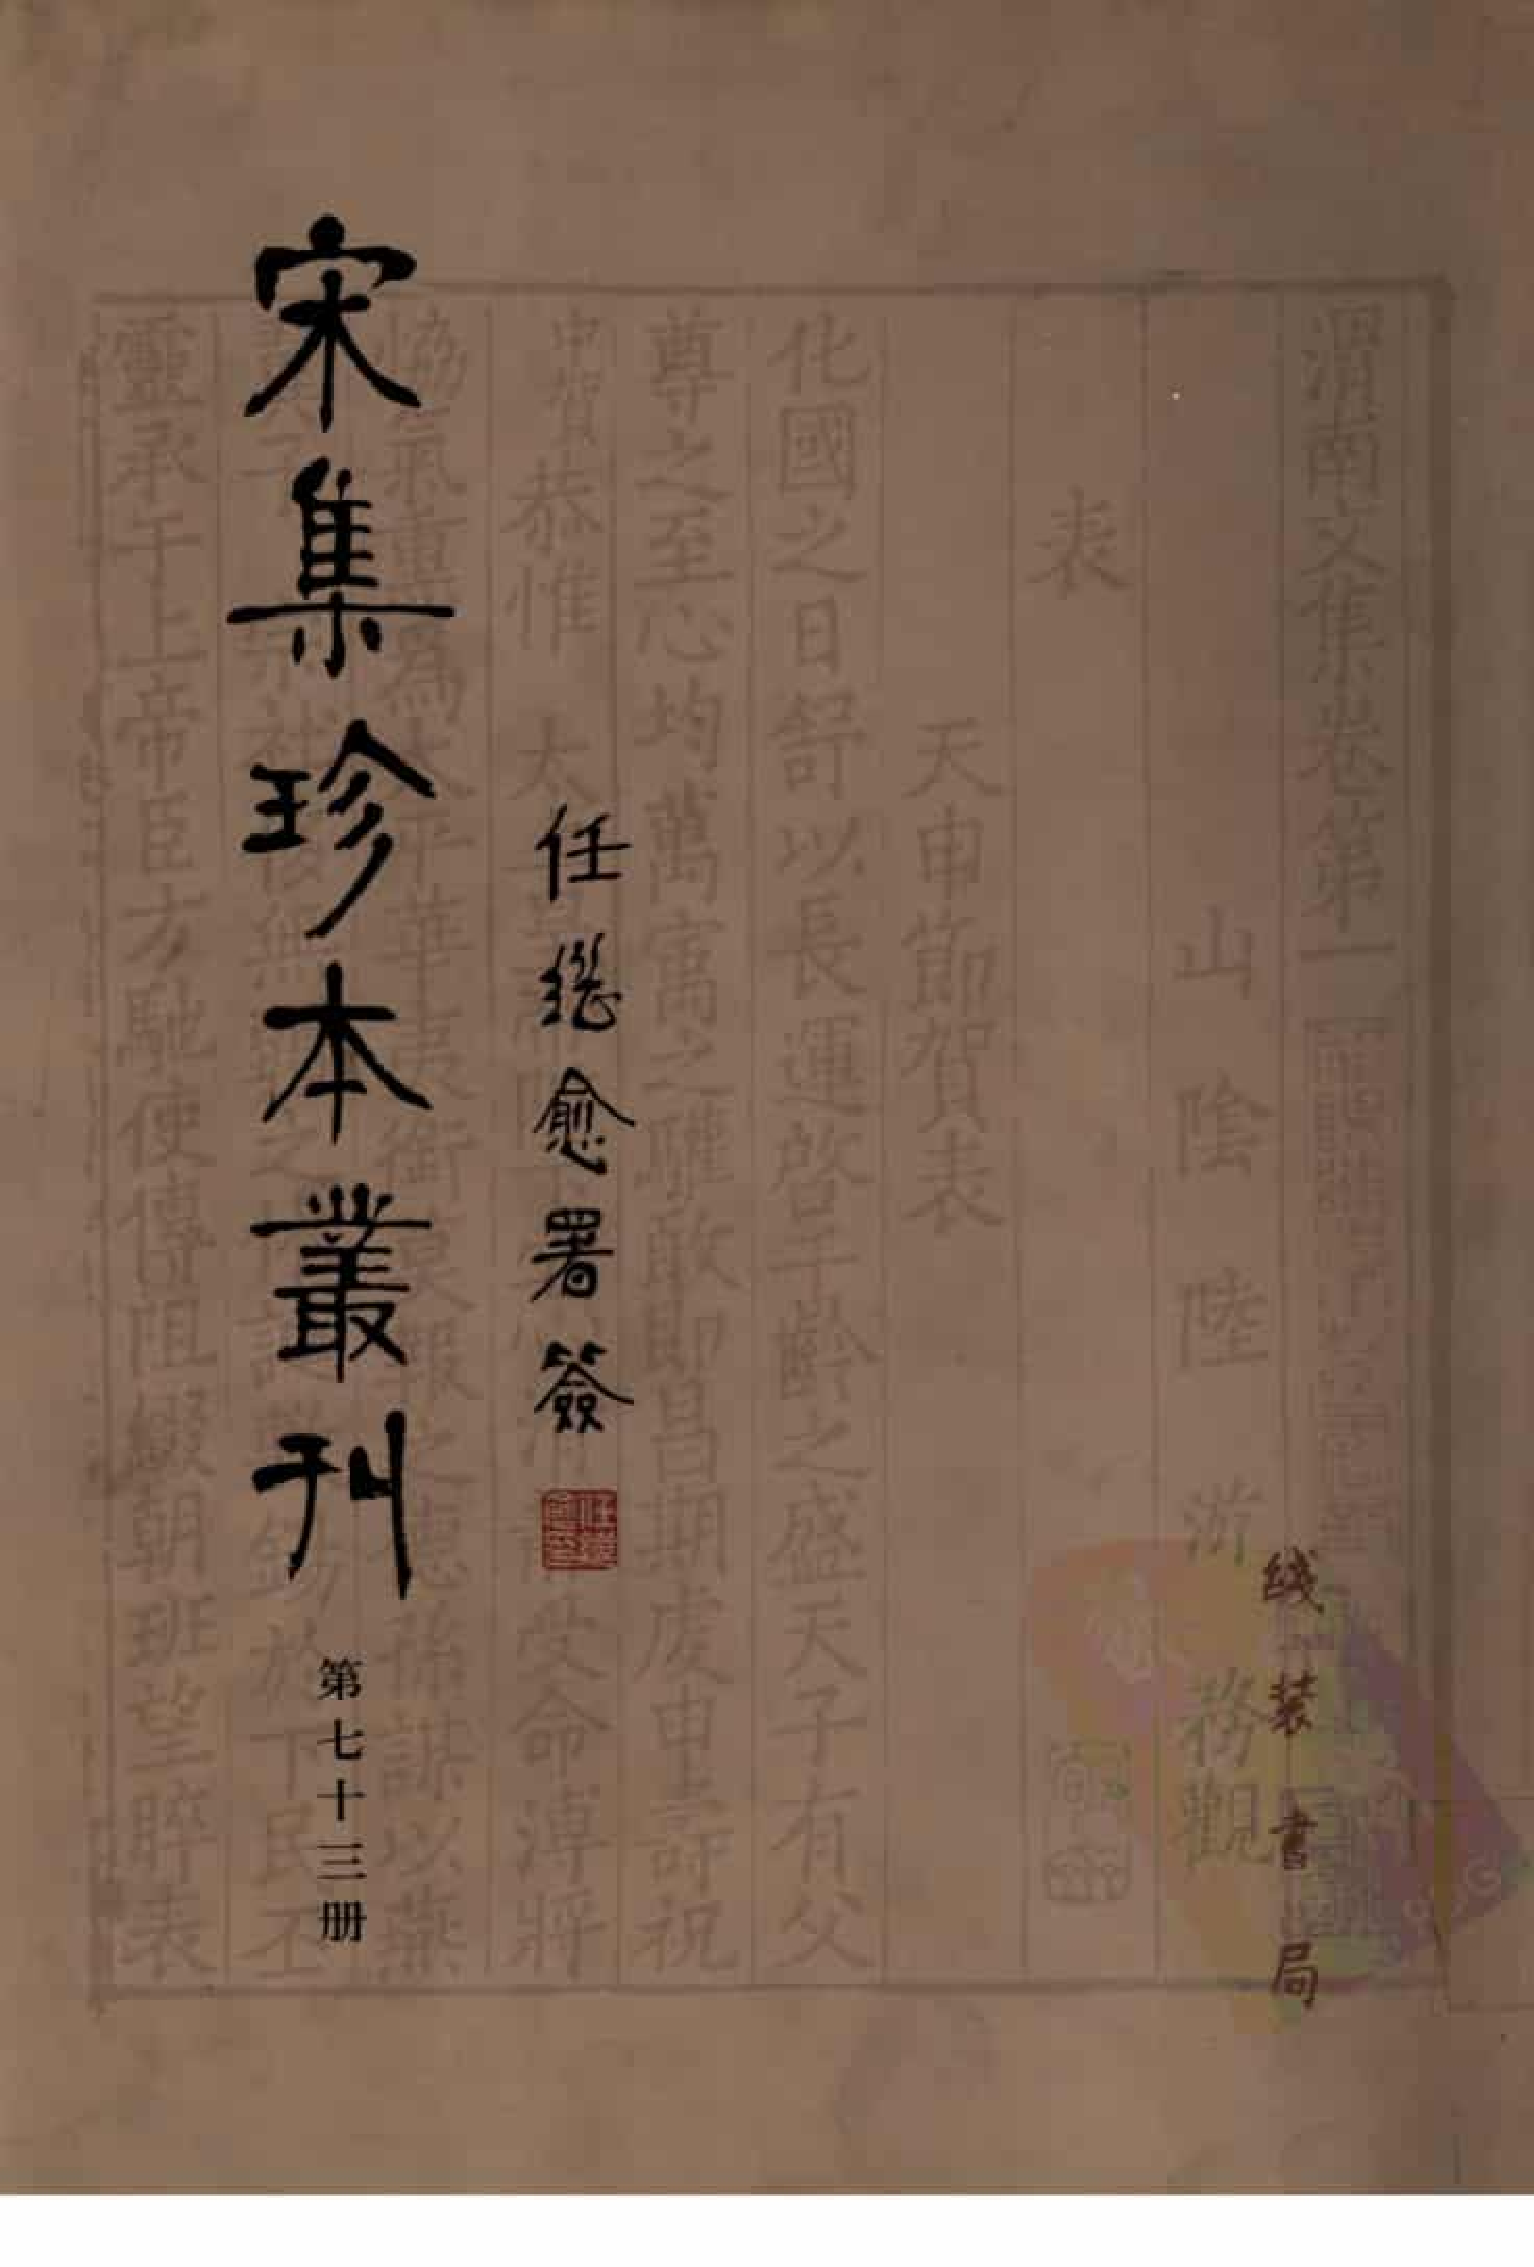 宋集珍本叢刊
第七十三册
任继愈署簽
线装書局
渭南文集卷第一
山陰陸游務觀
表
天申節賀表
化國之日舒以長運啓千齡之盛天子有父
尊之至心均萬寓之驩敢即昌期虔申壽祝
中賀恭惟太
受命溥將
協氣重
爲太平華夷
孫謀以燕
於下民
靈承于上帝臣方馳使傳阻綴朝班望睟表